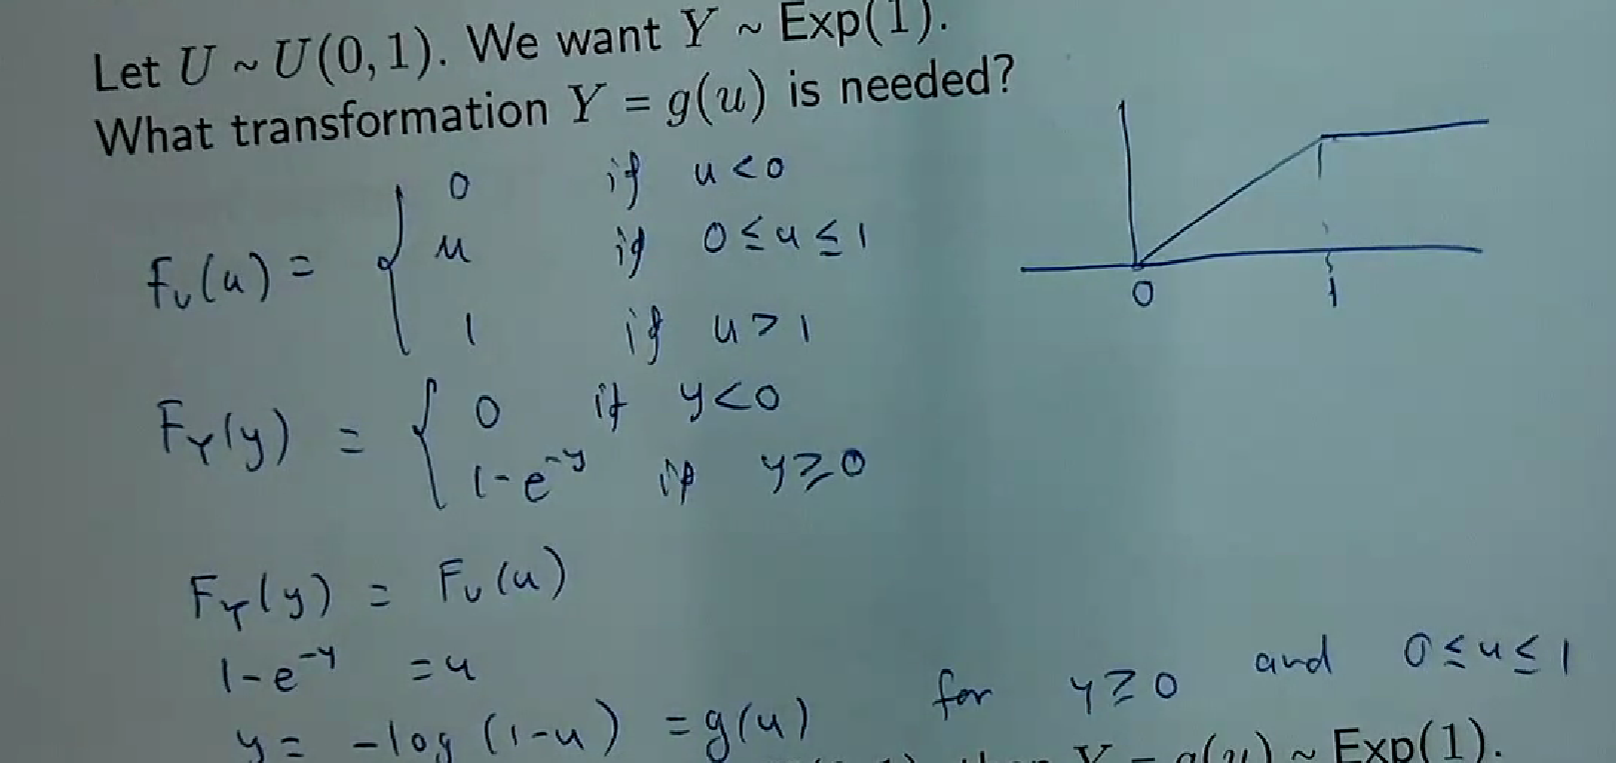 Let U ~ U(0,1). We want Y ~ Exp(1).
What transformation Y = g(u) is needed?
F_U(u) = { 0 if u<0
u if 0≤u≤1
1 if u>1
0 1
F_Y(y) = { 0 if y<0
1-e^{-y} if y≥0
F_Y(y) = F_U(u)
1-e^{-y} = u
y = -log(1-u) = g(u) for y≥0 and 0≤u≤1
Y = g(u) ~ Exp(1).